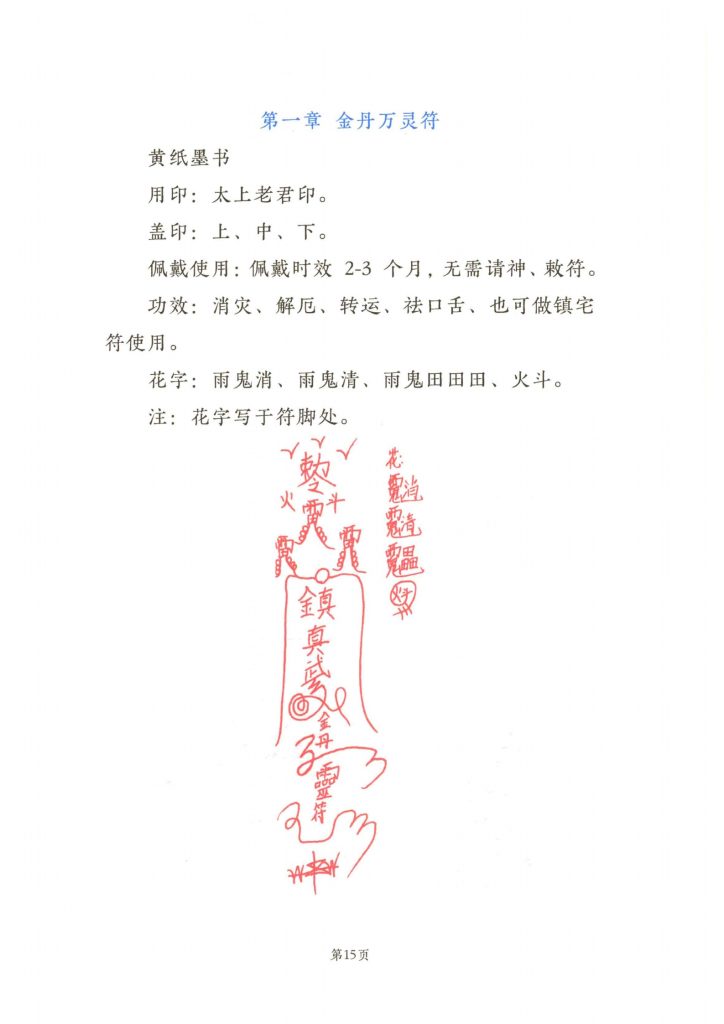 第一章 金丹万灵符
黄纸墨书
用印：太上老君印。
盖印：上、中、下。
佩戴使用：佩戴时效 2-3 个月，无需请神、敕符。
功效：消灾、解厄、转运、祛口舌、也可做镇宅
符使用。
花字：雨鬼消、雨鬼清、雨鬼田田田、火斗。
注：花字写于符脚处。
花：
火 斗
鎮
真
武
金
丹
靈
符
第15页